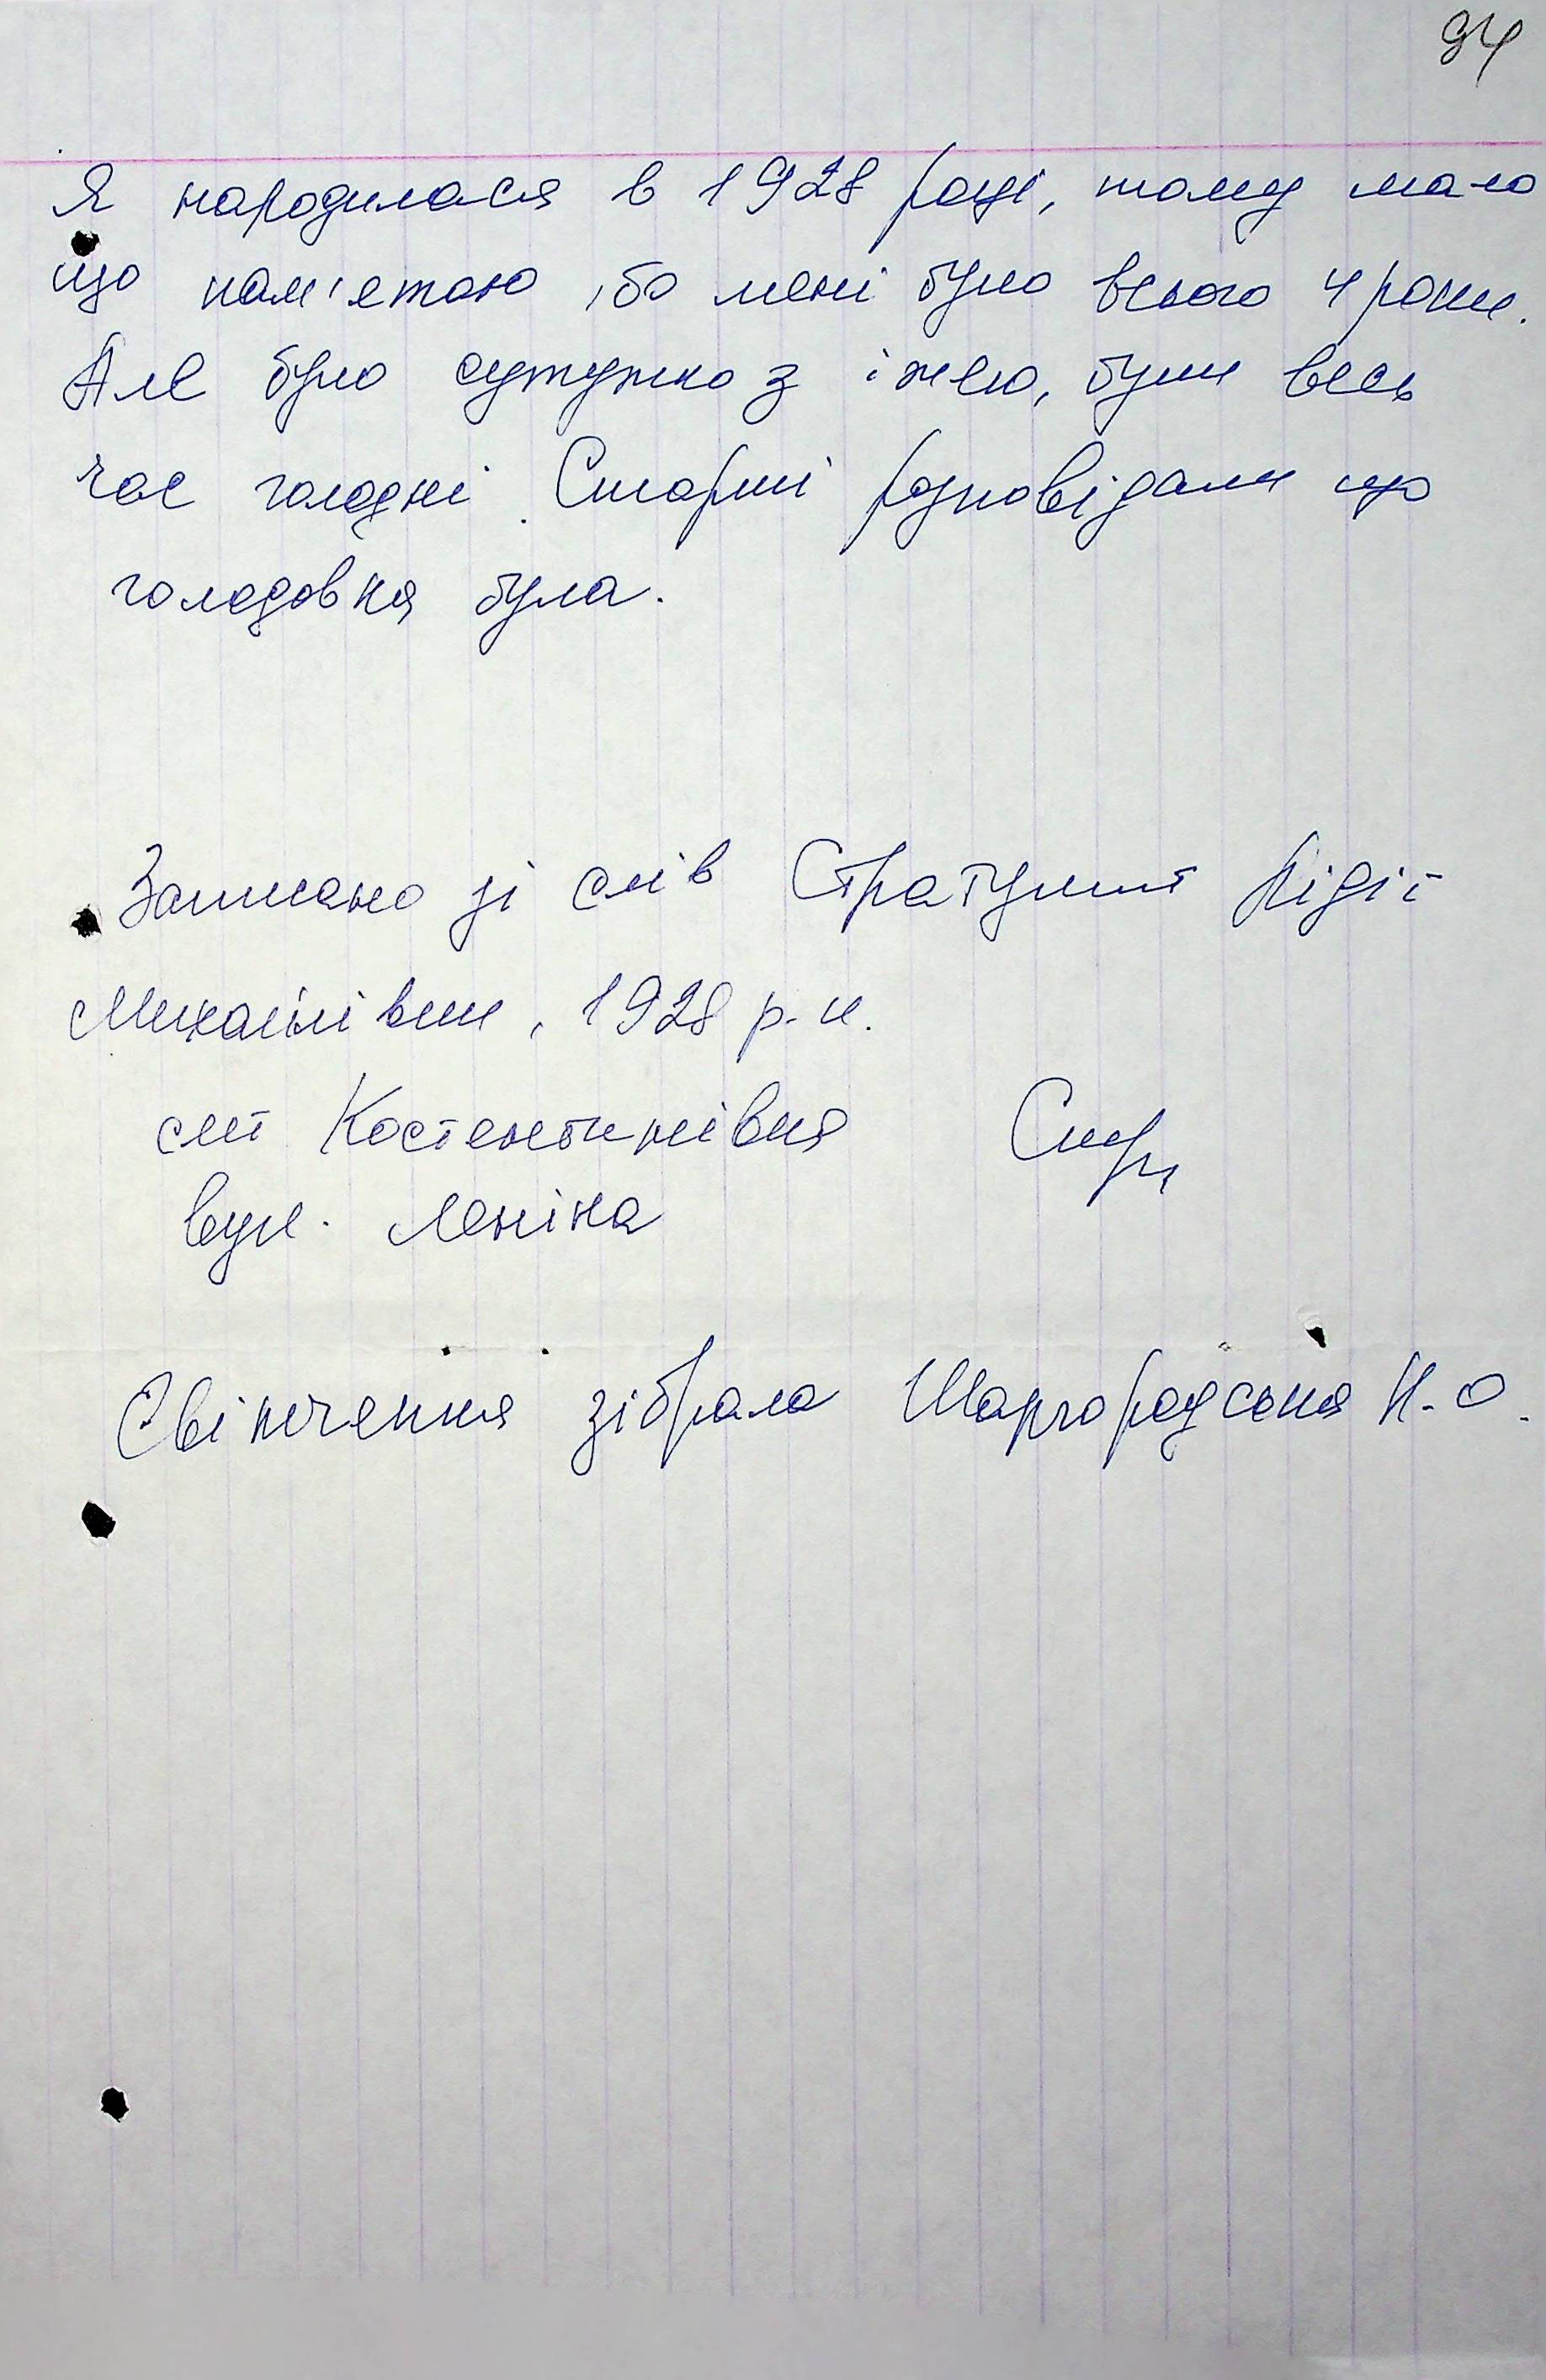 94
Я народилася в 1928 році, тому мало
що пам'етаю, бо мені було всього 4 роки.
Але було сутужно з їжею, були весь
час голодні. Старші розповідали що
голодовка була.
Записано зі слів Лідії
Михайлівни, 1928 р.н.
смт Костянтинівка
вул. Леніна
Свідчення зібрала Шаргородська Н.О.